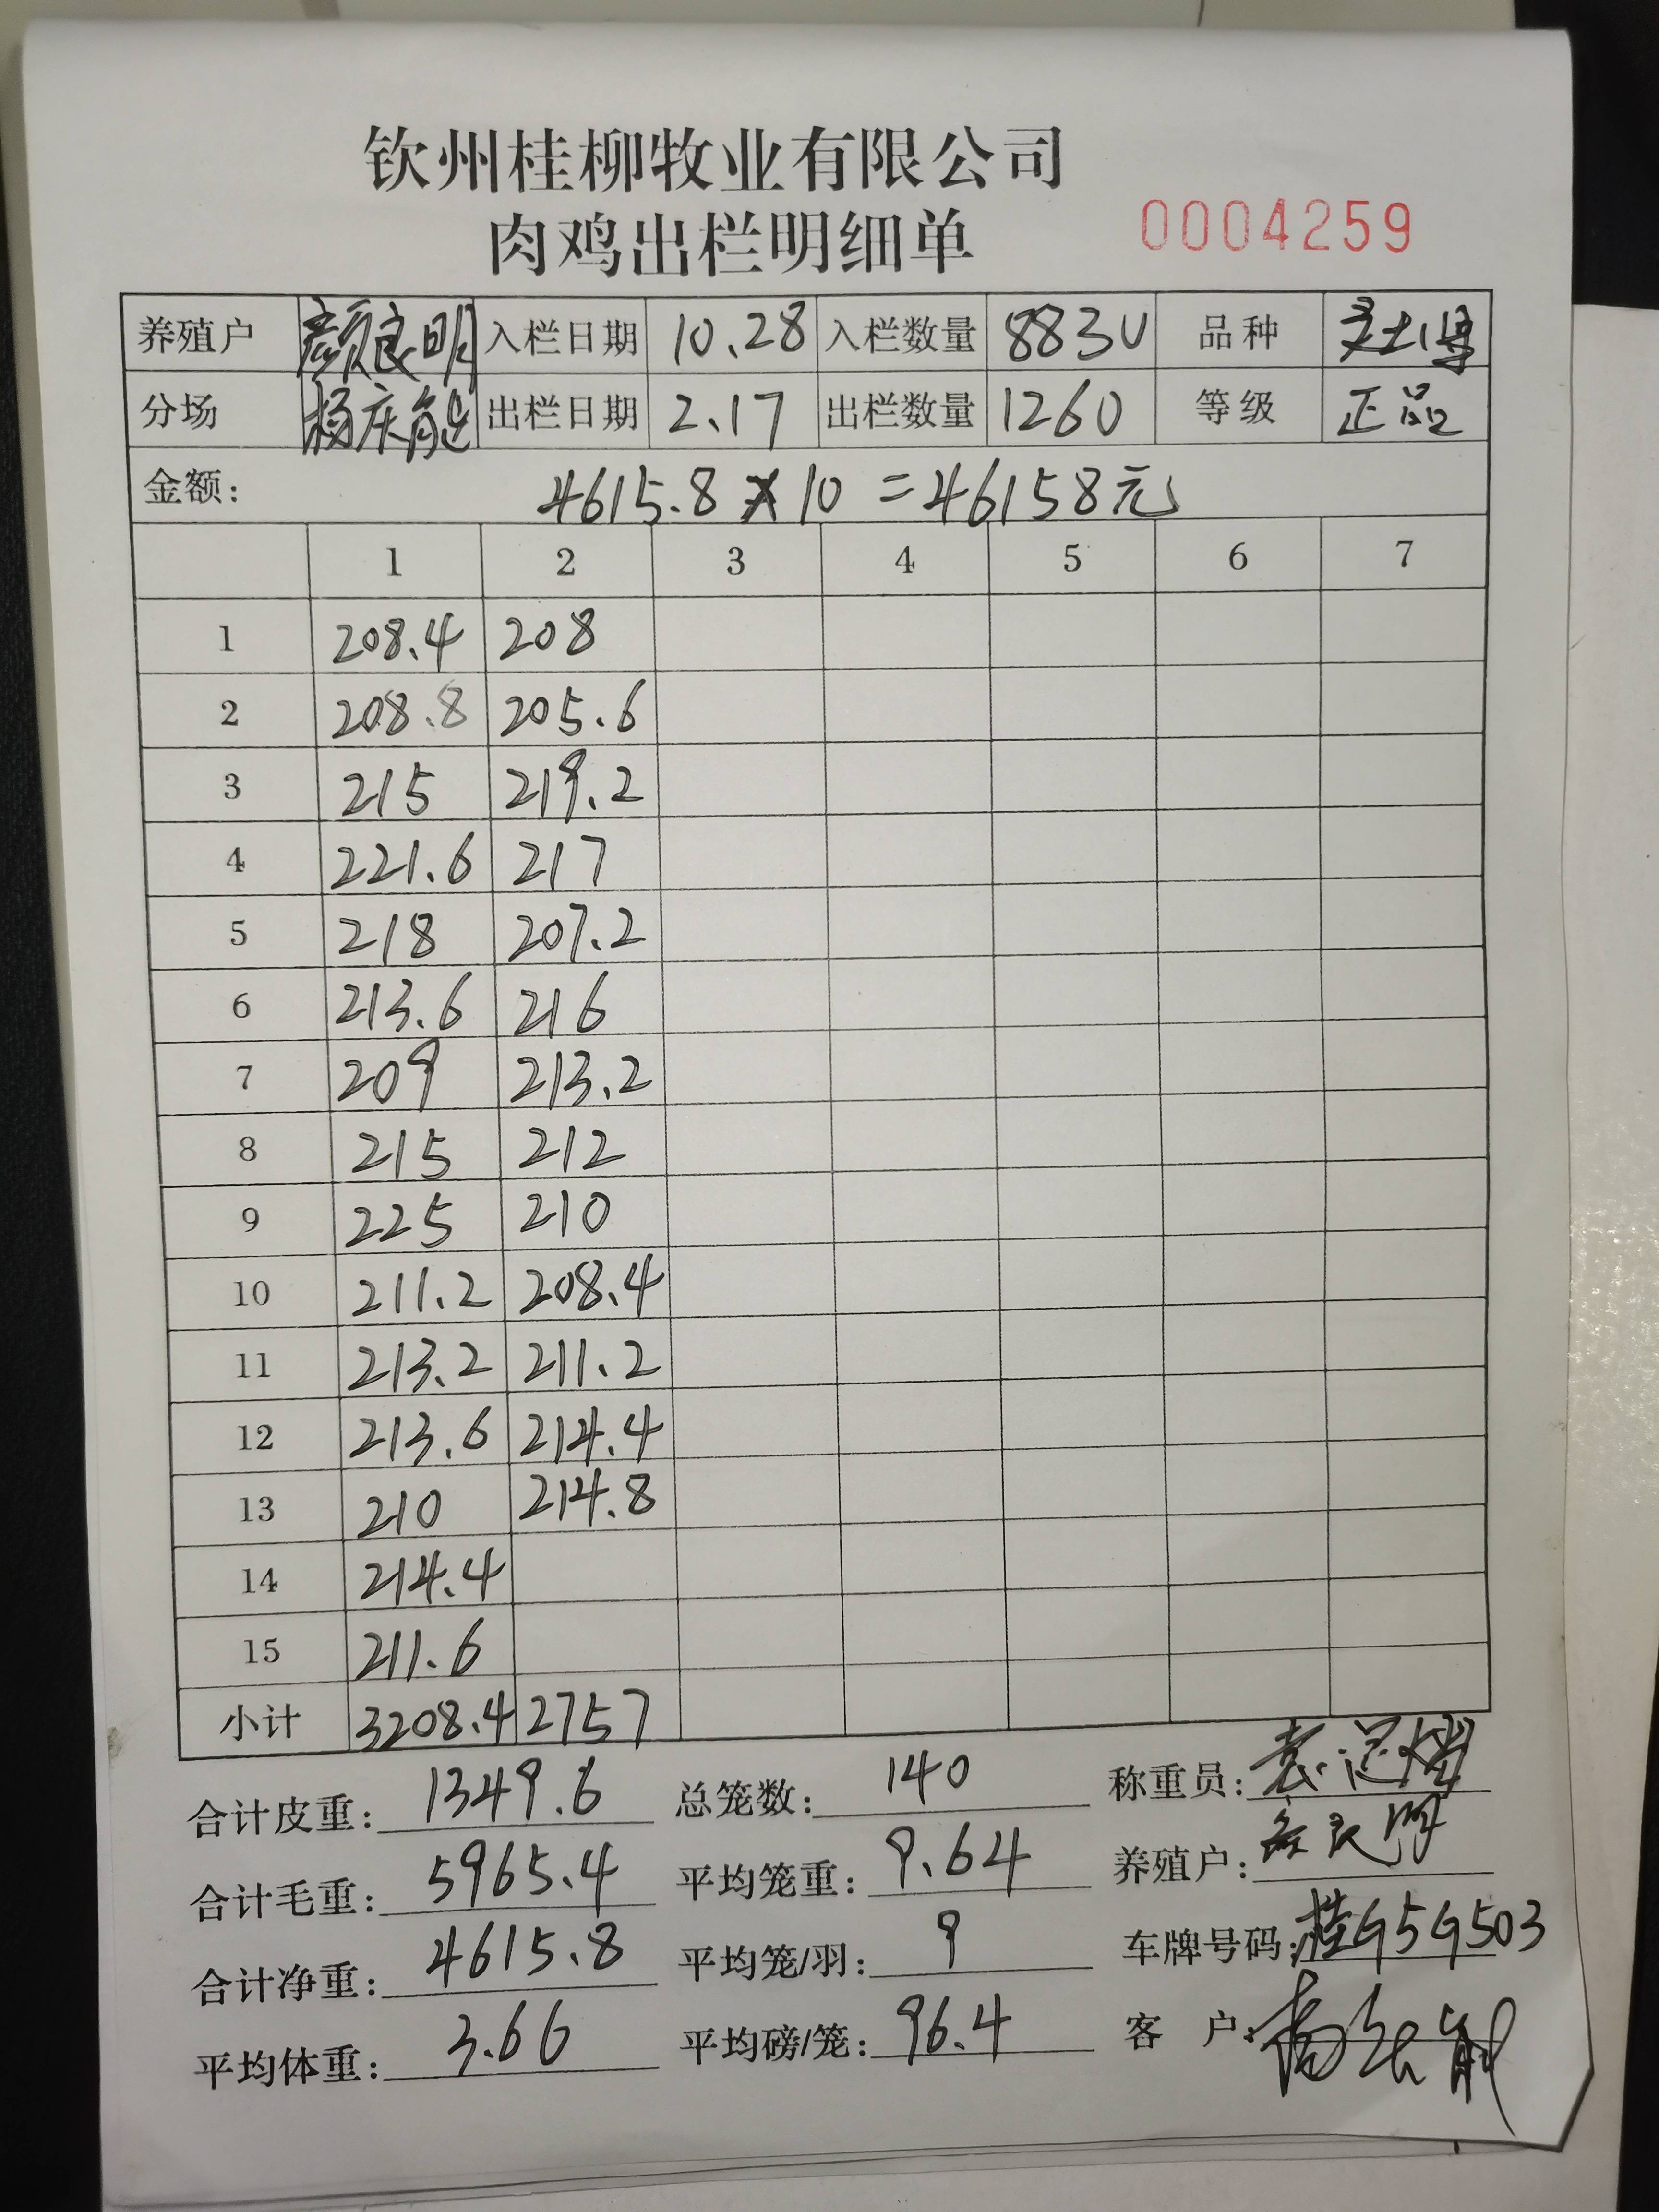 钦州桂柳牧业有限公司
肉鸡出栏明细单 0004259
养殖户 颜良明 入栏日期 10.28 入栏数量 8830 品种
分场 杨庆能 出栏日期 2.17 出栏数量 1260 等级 正品
金额: 4615.8×10=46158元
1 2 3 4 5 6 7
1 208.4 208
2 208.8 205.6
3 215 219.2
4 221.6 217
5 218 207.2
6 213.6 216
7 209 213.2
8 215 212
9 225 210
10 211.2 208.4
11 213.2 211.2
12 213.6 214.4
13 210 214.8
14 214.4
15 211.6
小计 3208.4 2757
合计皮重: 1349.6 总笼数: 140 称重员:
合计毛重: 5965.4 平均笼重: 9.64 养殖户:
合计净重: 4615.8 平均笼/羽: 9 车牌号码: 桂G5G503
平均体重: 3.66 平均磅/笼: 96.4 客 户: